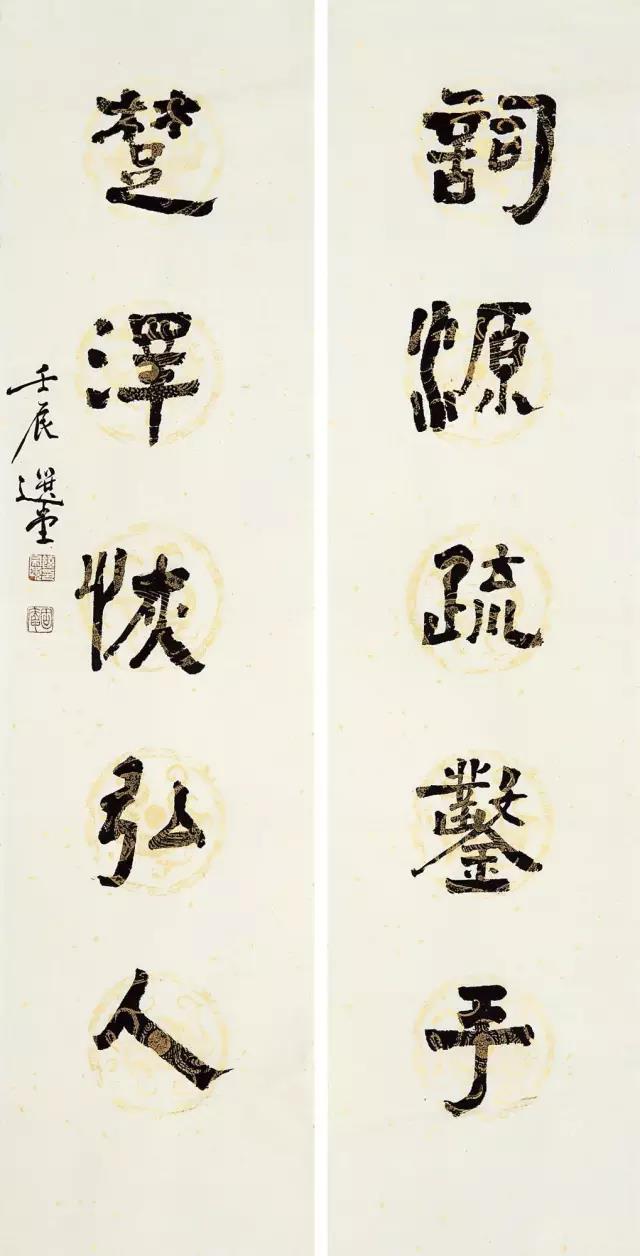 詞源疏鑿手
楚澤恢弘人
壬辰選堂